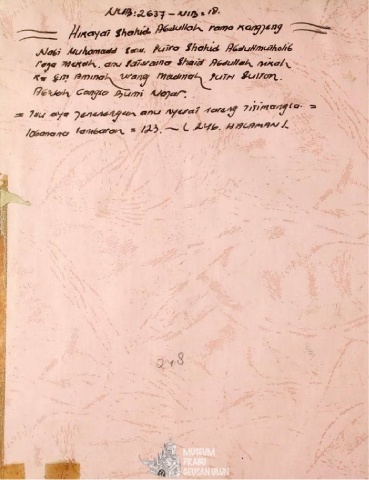 NUB: 2637 - NIB = 18.
Hikayat Shahid Abdullah rama Kangjeng
Nabi Muhamad saw. Putra Shahid Abdulmutholib
raja Mekah, anu Satuluyna Shaid Abdullah nikah
ka Siti Aminah urang Madinah Putri Sulton.
Abwah Bumi
= Teu aya Penerangan anu nyerat sareng Titimangsa. =
lobanana lambaran = 123. ~ ( 246. HALAMAN (
248
MUSEUM
PRABU
GEUSAN ULUN